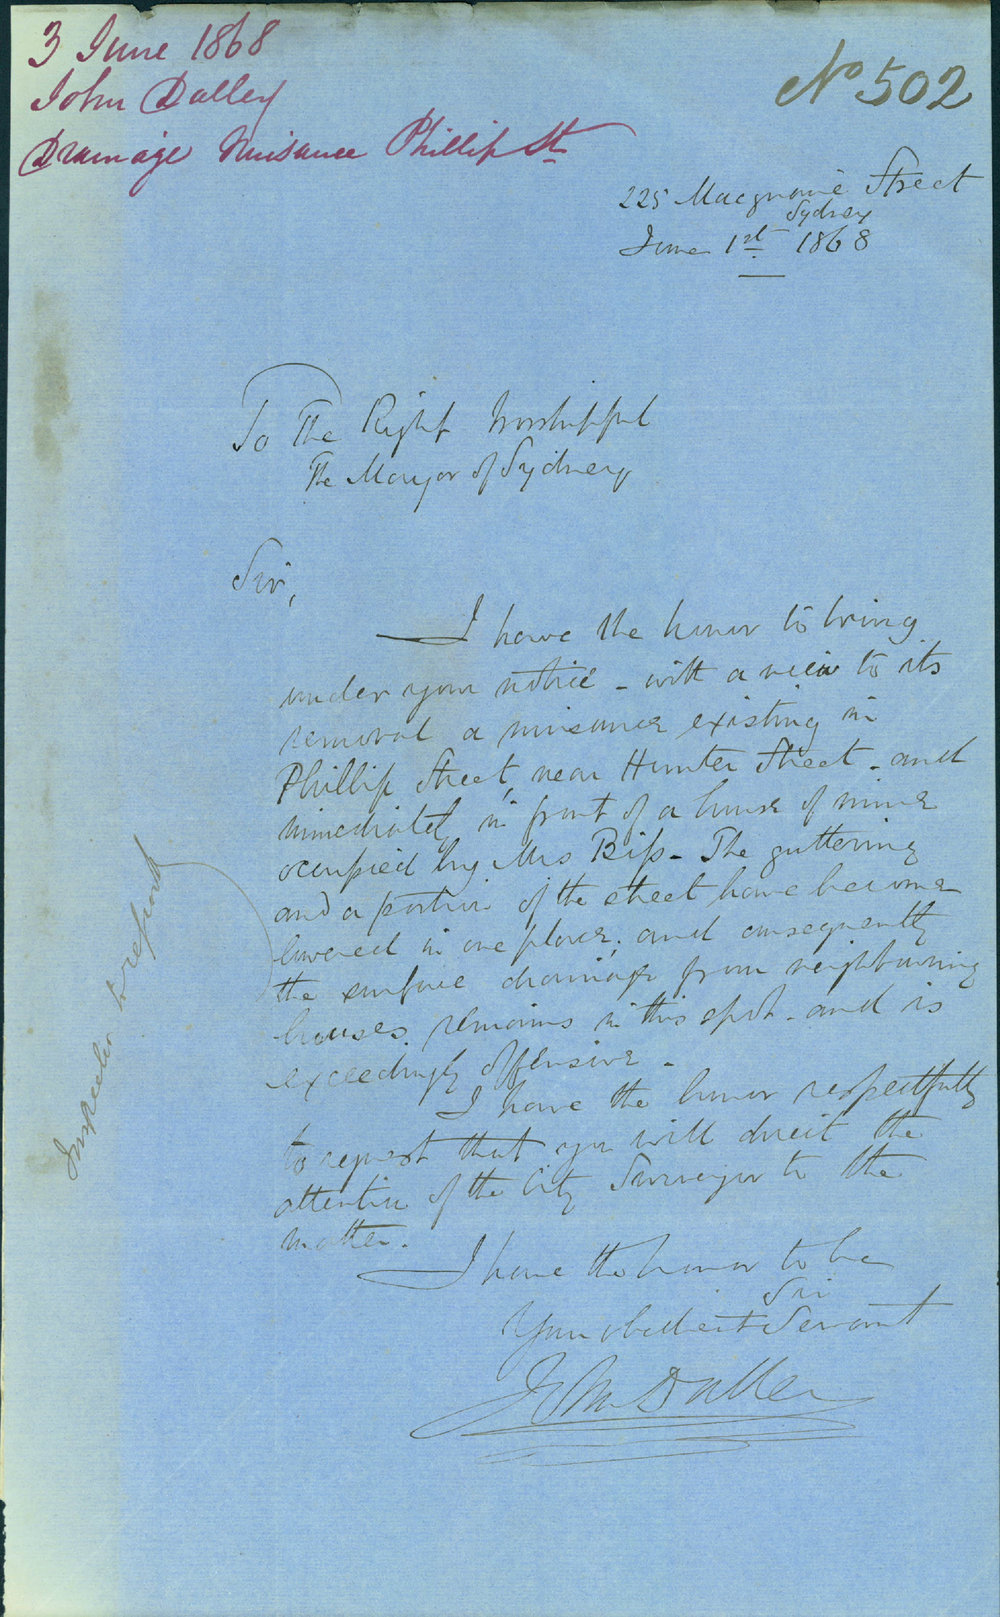 3 June 1868
John Dalley
Drainage Nuisance Phillip St
No 502
225 Macquarie Street
Sydney
June 1st 1868
To The Right Worshipful
The Mayor of Sydney
Sir,
I have the honor to bring
under your notice - with a view to its
removal a nuisance existing in
Phillip Street, near Hunter Street - and
immediately in front of a house of mine
occupied by Mrs Biss - The guttering
and a portion of the street have become
lowered in one place, and consequently
the surface drainage from neighbouring
houses remains in this spot - and is
exceedingly offensive -
I have the honor respectfully
to request that you will direct the
attention of the City Surveyor to the
matter.
I have the honor to be
Sir
Your obedient Servant
John Dalley
Inspector to report